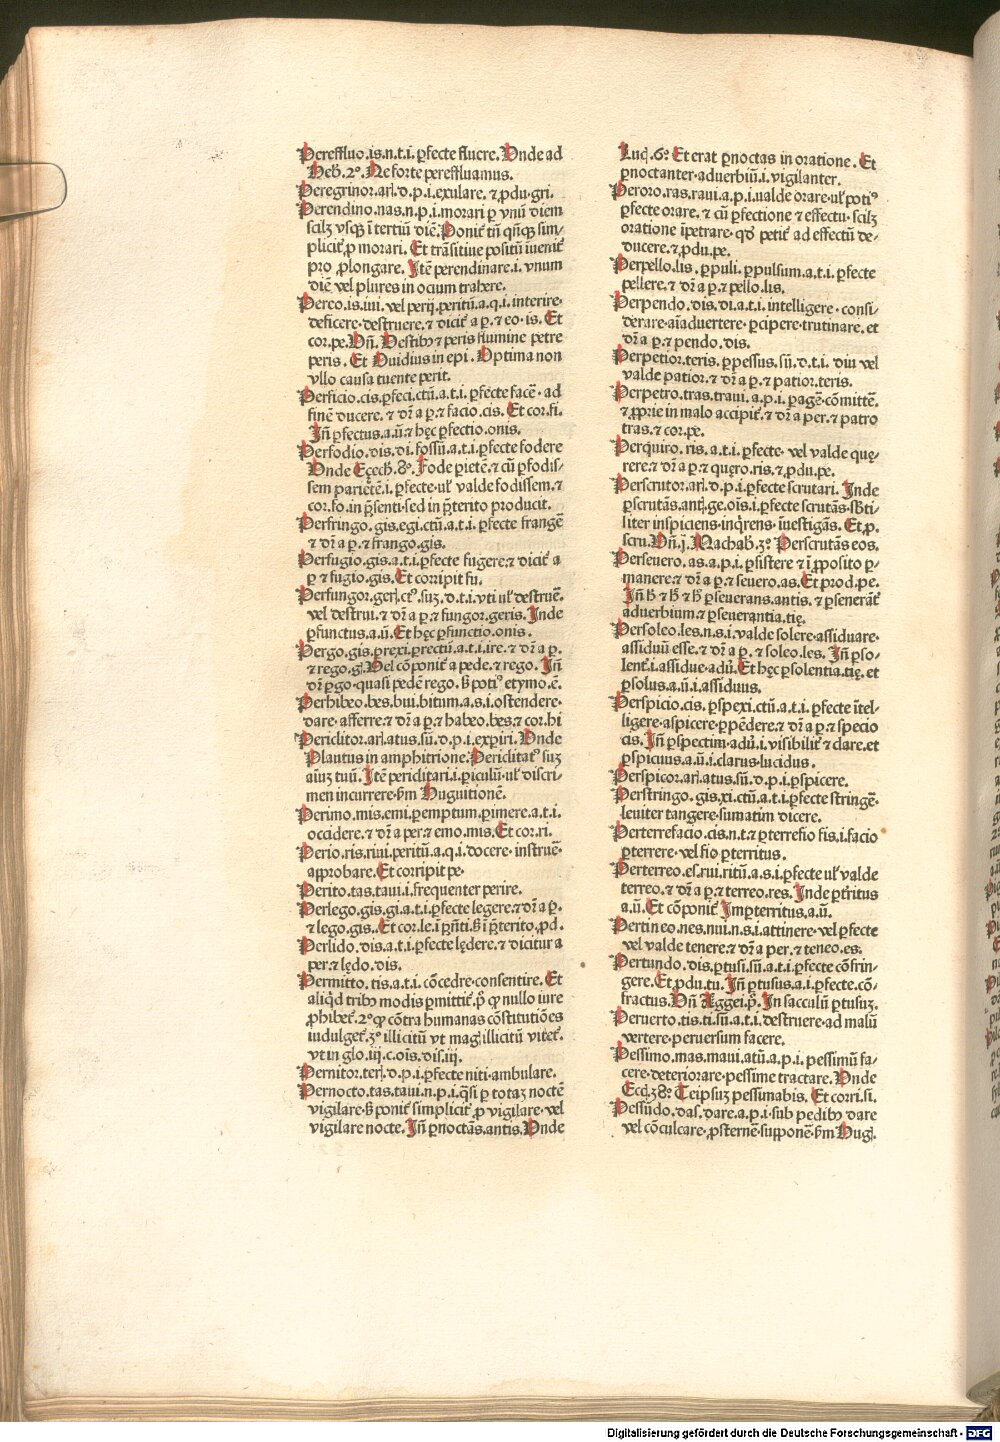 Pereffluo.is.n.t.i. ꝑfecte fluere. Unde ad
Heb. 2º. Ne forte pereffluamus.
Peregrinor.arꝭ.d.p.i.exulare. ⁊ ꝓdu.gri.
Perendino.nas.n.p.i.morari ꝑ vnū diem
scilꝫ vsqꝫ ī tertiū diē. Ponit᷑ tñ qñqꝫ sim-
plicit᷑ ꝓ morari. Et trāsitiue positū īuenit᷑
pro ꝓlongare. Itē perendinare.i. vnum
diē vel plures in ocium trahere.
Pereo.is.iui. vel perij.peritū.a.q.i. interire.
deficere.destruere.⁊ dicit᷑ a ꝑ.⁊ eo.is. Et
cor.pe. Uñ. Vestibꝫ ⁊ peris flumine petre
peris. Et Ouidius in epi. Optima non
vllo causa tuente perit.
Perficio.cis.ꝑfeci.ctū.a.t.i. ꝑfecte facē. ad
finē ducere. ⁊ dr̄ a ꝑ.⁊ facio.cis. Et cor.fi.
Iñ ꝑfectus.a.ū.⁊ hęc ꝑfectio.onis.
Perfodio.dis.di.fossū.a.t.i.ꝑfecte fodere
Unde Eçech.8º. Fode ꝑietē.⁊ cū ꝑfodis-
sem pariętē.i. ꝑfecte.ul᷑ valde fodissem.⁊
cor.fo.in p̄senti.sed in p̄terito producit.
Perfringo.gis.egi.ctū.a.t.i. ꝑfecte frangē
⁊ dr̄ a ꝑ.⁊ frango.gis.
Perfugio.gis.a.t.i.ꝑfecte fugere.⁊ dicit᷑ a
ꝑ ⁊ fugio.gis. Et corripit fu.
Perfungor.gerꝭ.ctꝰ.suꝫ.d.t.i.vti ul᷑ destruē.
vel destrui.⁊ dr̄ a ꝑ.⁊ fungor.geris. Inde
ꝑfunctus.a.ū. Et hęc ꝑfunctio.onis.
Pergo.gis.ꝑrexi.ꝑrectū.a.t.i.ire.⁊ dr̄ a ꝑ.
⁊ rego.gꝭ. Uel cōponit᷑ a pede.⁊ rego. Iñ
dr̄ ꝑgo.quasi pedē rego. ẞ potiꝰ etymo.ē.
Perhibeo.bes.bui.bitum.a.s.i.ostendere.
dare.afferre.⁊ dr̄ a ꝑ.⁊ habeo.bes.⁊ cor.hi
Periclitor.arꝭ.atus.sū.d.p.i.exꝑiri. Unde
Plautus in amphitrione. Periclitatꝰ suꝫ
aīuꝫ tuū. Itē periditari.i.ꝑiculū.ul᷑ discri-
men incurrere.ẞm Huguitionē.
Perimo.mis.emi.ꝑemptum.ꝑimere.a.t.i.
occidere.⁊ dr̄ a per.⁊ emo.mis. Et cor.ri.
Perio.ris.riui.peritū.a.q.i.docere. instruē.
approbare. Et corripit pe.
Perito.tas.taui.i.frequenter perire.
Perlego.gis.gi.a.t.i.ꝑfecte legere.⁊ dr̄ a ꝑ.
⁊ lego.gis.. Et cor.le.ī p̄nti.ẞ ī p̄terito.ꝓd.
Perlido.dis.a.t.i.ꝑfecte lędere.⁊ dicitur a
per.⁊ lędo.dis.
Permitto.tis.a.t.i. cōcedre.consentire. Et
aliqd tribꝰ modis ꝑmittit᷑. pº qꝫ nullo iure
ꝓhibet᷑. 2º qꝫ cōtra humanas cōstitutiōes
indulget᷑. 3º illicitū vt magꝭ illicitū vitet᷑.
vt in glo.iij.c.oīs.dis.iij.
Pernitor.terꝭ.d.p.i.ꝑfecte niti.ambulare.
Pernocto.tas.taui.n.p.i.qͣsi ꝑ totaꝫ noctē
vigilare.ẞ ponit᷑ simplicit᷑ ꝓ vigilare.vel
vigilare nocte. Iñ ꝑnoctās.antis. Unde
Lucꝭ.6º Et erat ꝑnoctas in oratione. Et
ꝑnoctanter.aduerbiū.i.vigilanter.
Peroro.ras.raui.a.p.i.valde orare.ul᷑ potiꝰ
ꝑfecte orare.⁊ cū ꝑfectione ⁊ effectu.scilꝫ
oratione īpetrare.qd᷑ petit᷑ ad effectū de-
ducere.⁊ ꝓdu.pe.
Perpello.lis. ꝑpuli. ꝑpulsum.a.t.i. ꝑfecte
pellere.⁊ dr̄ a ꝑ.⁊ pello.lis.
Perpendo.dis.di.a.t.i.intelligere.consi-
derare.aīaduertere.ꝑcipere.trutinare.et
dr̄ a ꝑ.⁊ pendo.dis.
Perpetior.teris.ꝑpessus.sū.d.t.i. diu vel
valde patior.⁊ dr̄ a ꝑ.⁊ patior.teris.
Perpetro.tras.traui.a.p.i.ꝑagē.cōmittē.
⁊ ꝓprie in malo accipit᷑.⁊ dr̄ a per.⁊ patro
tras.⁊ cor.pe.
Perquiro.ris.a.t.i.ꝑfecte. vel valde quę-
rere.⁊ dr̄ a ꝑ.⁊ quęro.ris.⁊ ꝓdu.pe.
Perscrutor.arꝭ.d.p.i.ꝑfecte scrutari. Inde
ꝑscrutās.antꝭ.ge.oīs.i.ꝑfecte scrutās.sbti-
liter inspiciens.inqrens.īuestigās. Et ꝓ.
scru. Uñ.j. Machab.3º. Perscrutās eos.
Perseuero.as.a.p.i. ꝑsistere.⁊ ī ꝓposito ꝑ-
manere.⁊ dr̄ a ꝑ.⁊ seuero.as. Et prod.pe.
Iñ h̄ ⁊ h̄ ⁊ h̄ ꝑseuerans.antis.⁊ ꝑseuerāt᷑
aduerbium.⁊ ꝑseuerantia.tię.
Persoleo.les.n.s.i.valde solere.assiduare.
assiduū esse.⁊ dr̄ a ꝑ.⁊ soleo.les. Iñ ꝑso-
lent᷑.i.assidue.adū. Et hęc ꝑsolentia.tię.et
ꝑsolus.a.ū.i.assiduus.
Perspicio.cis.ꝑspexi.ctū.a.t.i.ꝑfecte ītel-
ligere.aspicere.ꝑpēdere.⁊ dr̄ a ꝑ.⁊ specio
cis. Iñ ꝑspectim.adū.i.visibilit᷑ ⁊ clare.et
ꝑspicuus.a.ū.i.clarus.lucidus.
Perspicor.arꝭ.atus.sū.d.p.i.ꝑspicere.
Perstringo.gis.xi.ctū.a.t.i.ꝑfecte stringē.
leuiter tangere.sumatim dicere.
Perterrefacio.cis.n.t.⁊ ꝑterrefio fis.i.facio
ꝑterrere.vel fio ꝑterritus.
Perterreo.es.rui.ritū.a.s.i.ꝑfecte ul᷑ valde
terreo.⁊ dr̄ a ꝑ.⁊ terreo.res. Inde ꝑt᷑ritus
a.ū. Et cōponit᷑ Imperterritus.a.ū.
Pertineo.nes.nui.n.s.i.attinere.vel ꝑfecte
vel valde tenere.⁊ dr̄ a per.⁊ teneo.es.
Pertundo.dis.ꝑtusi.sū.a.t.i.ꝑfecte cōfrin-
gere. Et ꝓdu.tu. Iñ ꝑtusus.a.i.ꝑfecte.cō-
fractus. Uñ Aggei.pº. In sacculū ꝑtusuꝫ.
Peruerto.tis.ti.sū.a.t.i.destruere.ad malū
vertere.peruersum facere.
Pessimo.mas.maui.atū.a.p.i.pessimū fa-
cere.deteriorare.pessime tractare. Unde
Eccꝭ.38º. Teipsuꝫ pessimabis. Et corri.si.
Pessūdo.das.dare.a.p.i.sub pedibꝰ dare
vel cōculcare.ꝓsternē.supponē.ẞm Hugꝭ.
Digitalisierung gefördert durch die Deutsche Forschungsgemeinschaft - DFG